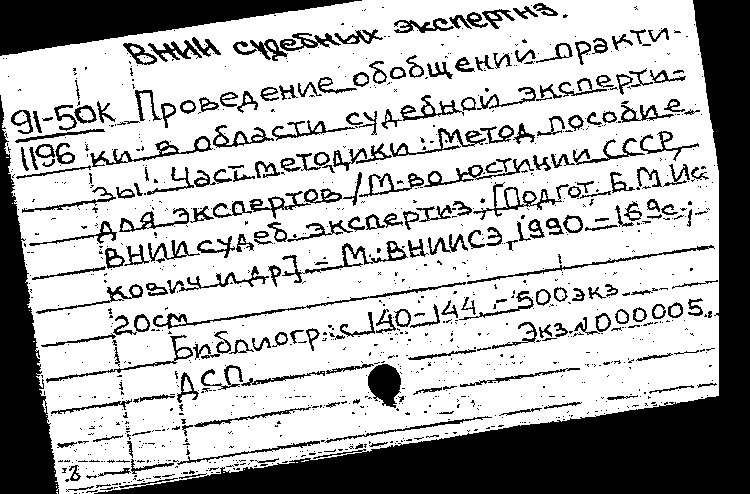 ВНИИ судебных экспертиз.
91-50К Проведение обобщений практи-
1196 ки в области судебной эксперти-
зы: Част. методики: Метод. пособие
для экспертов / М-во юстиции СССР,
ВНИИ судеб. экспертиз; [Подгот. Б.М.Ис
кович и др]. - М.: ВНИИСЭ, 1990. - 169с.;
20см
Библиогр.: с. 140-144. - 500экз
Экз.N000005.
ДСП.